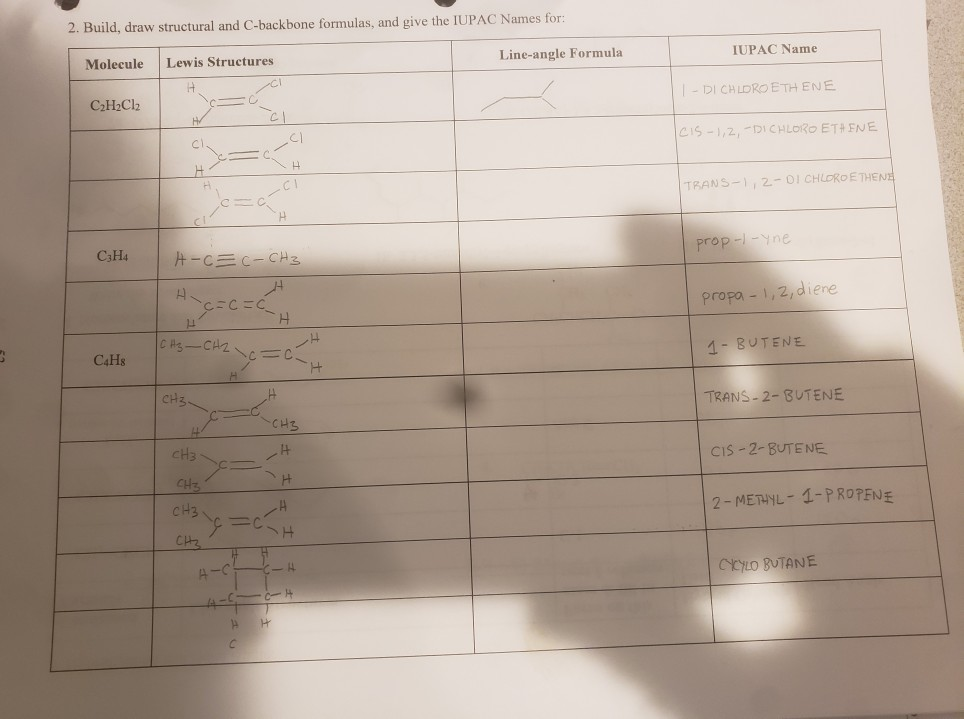 2. Build, draw structural and C-backbone formulas, and give the IUPAC Names for:
Molecule Lewis Structures Line-angle Formula IUPAC Name
C₂H₂Cl₂ H Cl C=C H Cl 1-DICHLOROETHENE
Cl Cl C=C H H CIS-1,2,-DICHLOROETHENE
H Cl C=C Cl H TRANS-1,2-DICHLOROETHENE
C₃H₄ H-C≡C-CH3 prop-1-yne
H H C=C=C H H propa-1,2,diene
C₄H₈ CH3-CH2 H C=C H H 1-BUTENE
CH3 H C=C H CH3 TRANS-2-BUTENE
CH3 H C= CH3 H CIS-2-BUTENE
CH3 H C=C CH3 H 2-METHYL-1-PROPENE
H H
H-C-C-H CYCYLOBUTANE
H-C-C-H
H H
C